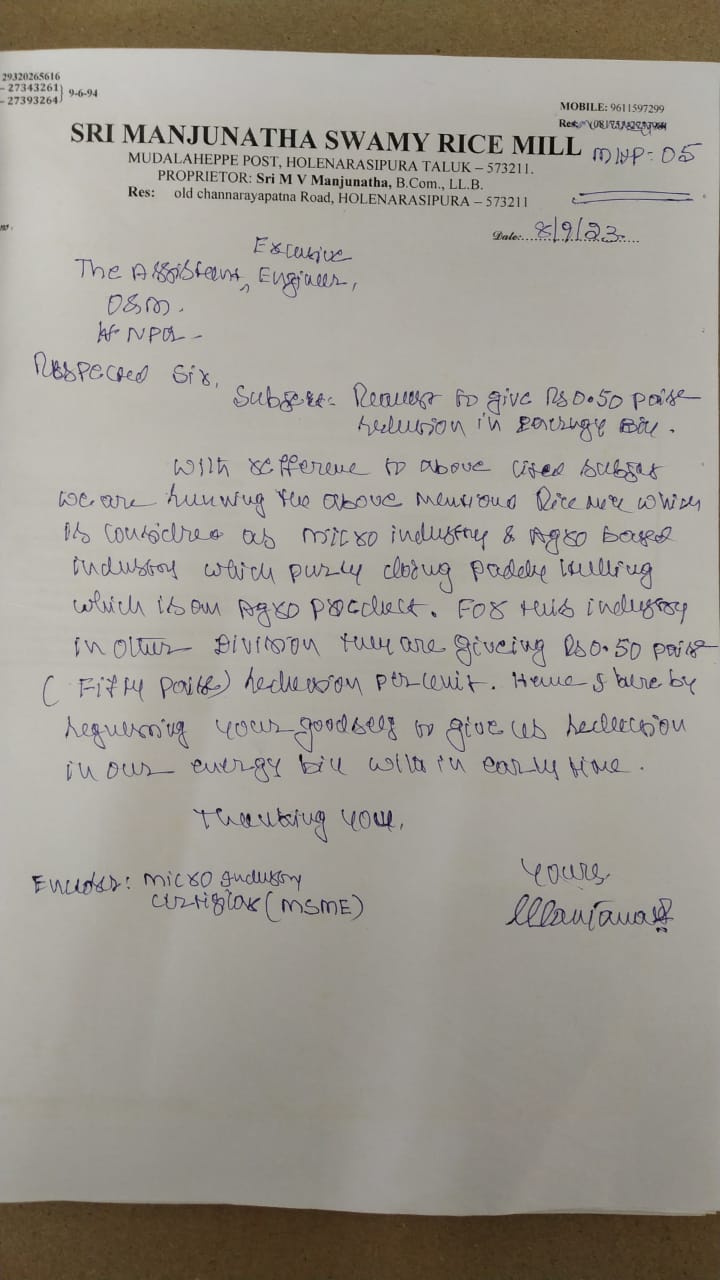 29320265616
- 27343261
- 27393264
9-6-94
MOBILE: 9611597299
Res:
SRI MANJUNATHA SWAMY RICE MILL
MHP-05
MUDALAHEPPE POST, HOLENARASIPURA TALUK – 573211.
PROPRIETOR: Sri M V Manjunatha, B.Com., LL.B.
Res: old channarayapatna Road, HOLENARASIPURA – 573211
Date: 8/9/23
Excutive
The Assistant, Engineer,
O&M.
Respected Sir,
Subject:- Request to give Rs 0.50 paise
reduction in energy Bill.
With refference to above cited subject
we are running the above mentiond Rice mill which
is considred as micro industry & Agro based
industry which purly doing paddy Hulling
which is an Agro product. For this industry
in other Division they are giveing Rs 0.50 paise
(Fifty paise) reduction per unit. Hence I here by
requesting your goodself to give us reduction
in our energy bill with in early time.
Thanking you,
Yours
Enclosr: micro Industry
Manjunath
(MSME)